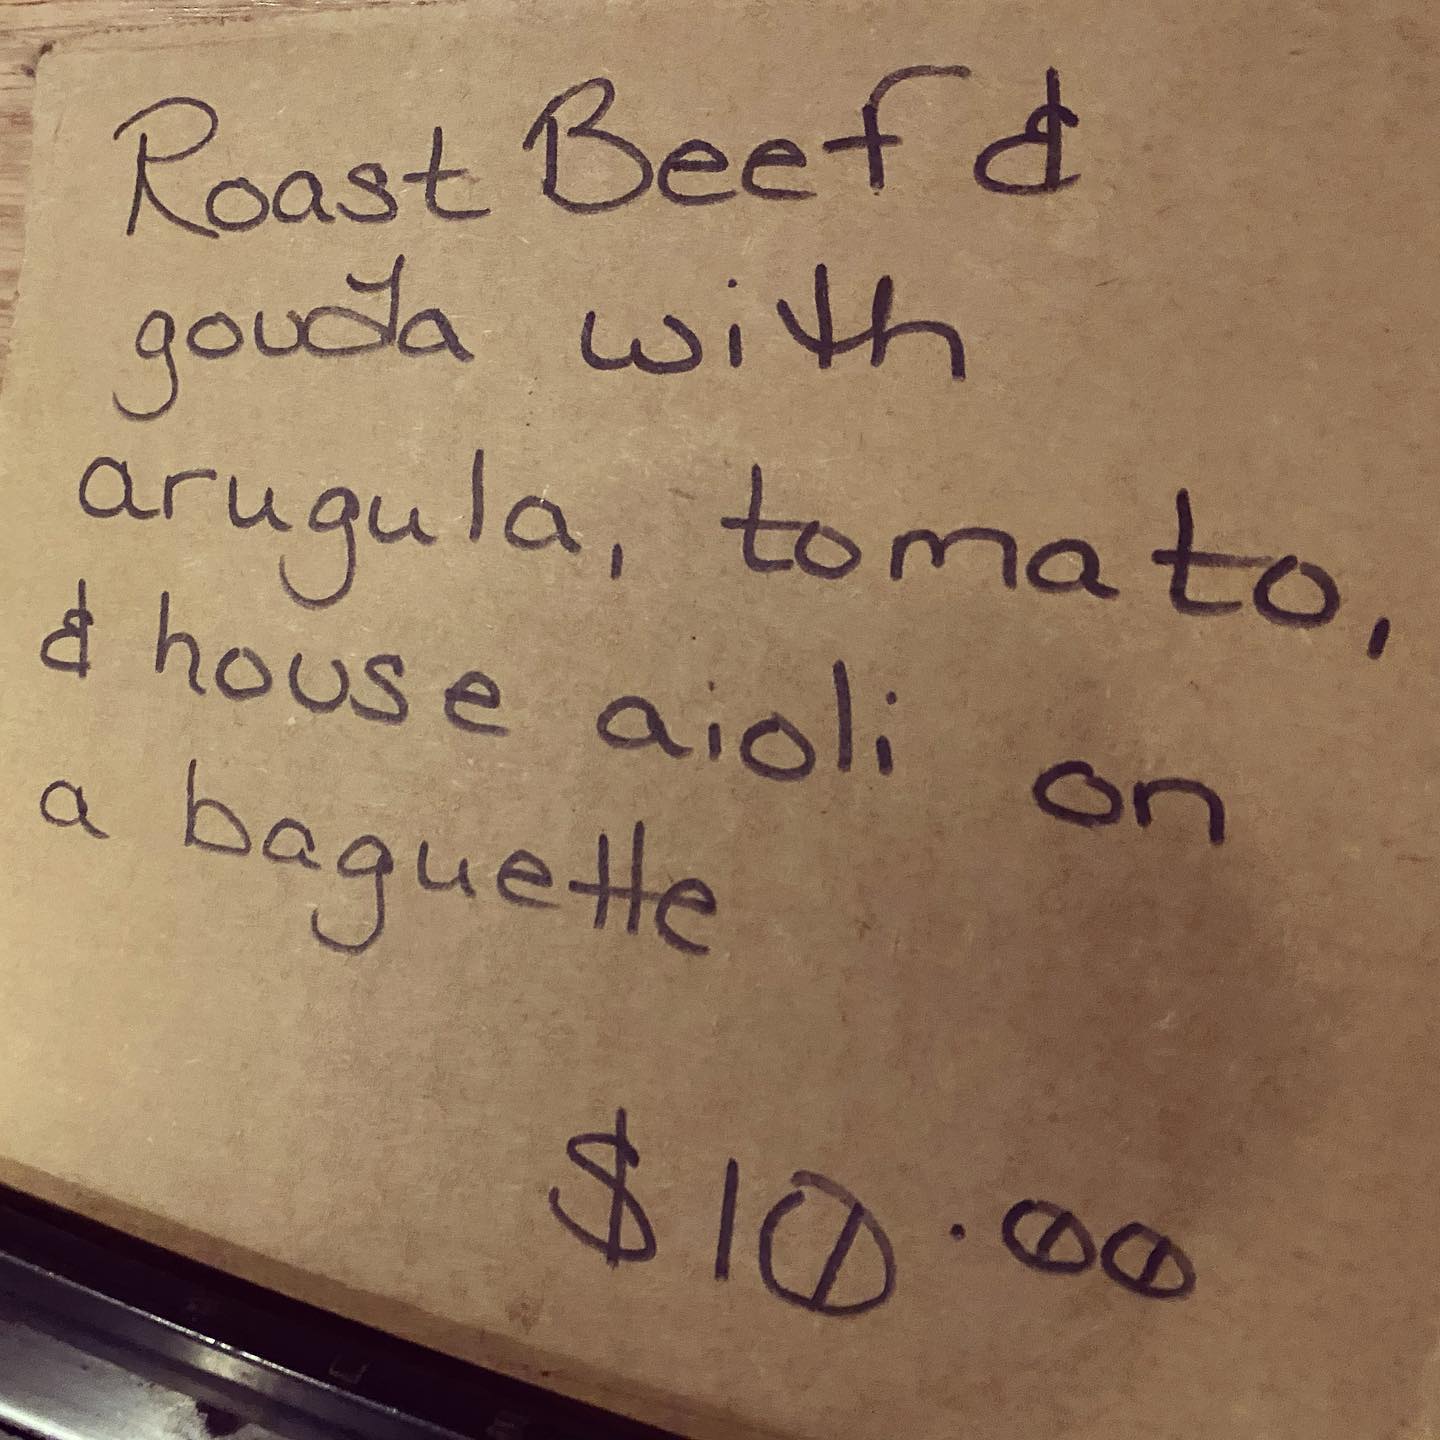 Roast Beef &
gouda with
arugula, tomato,
& house aioli on
a baguette
$10.00